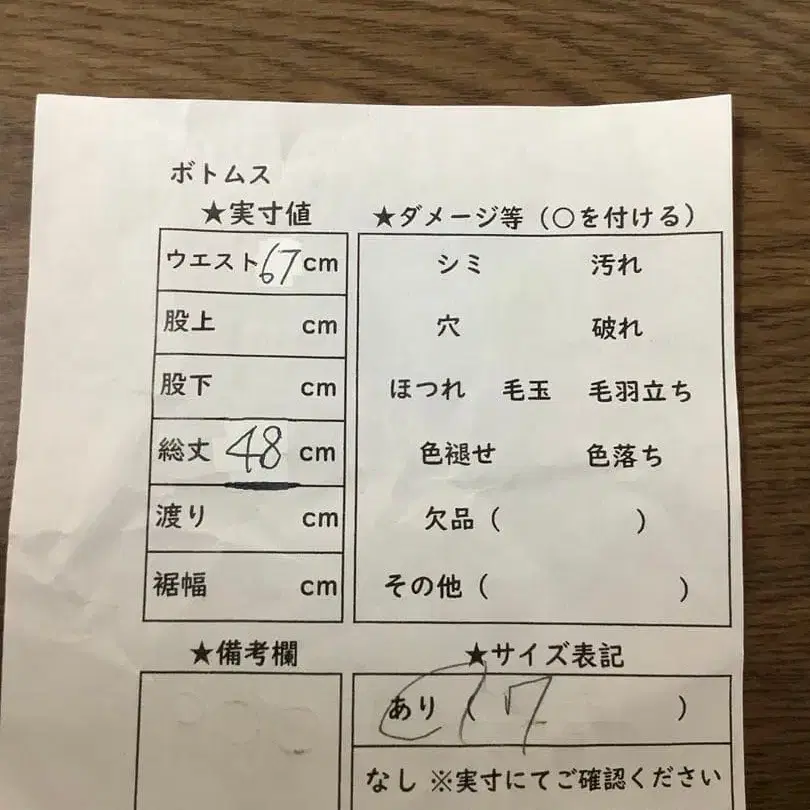 ボトムス
★実寸値
ウエスト67cm
股上 cm
股下 cm
総丈 48 cm
渡り cm
裾幅 cm
★ダメージ等（○を付ける）
シミ 汚れ
穴 破れ
ほつれ 毛玉 毛羽立ち
色褪せ 色落ち
欠品（ ）
その他（ ）
★備考欄
★サイズ表記
あり（ ）
なし ※実寸にてご確認ください